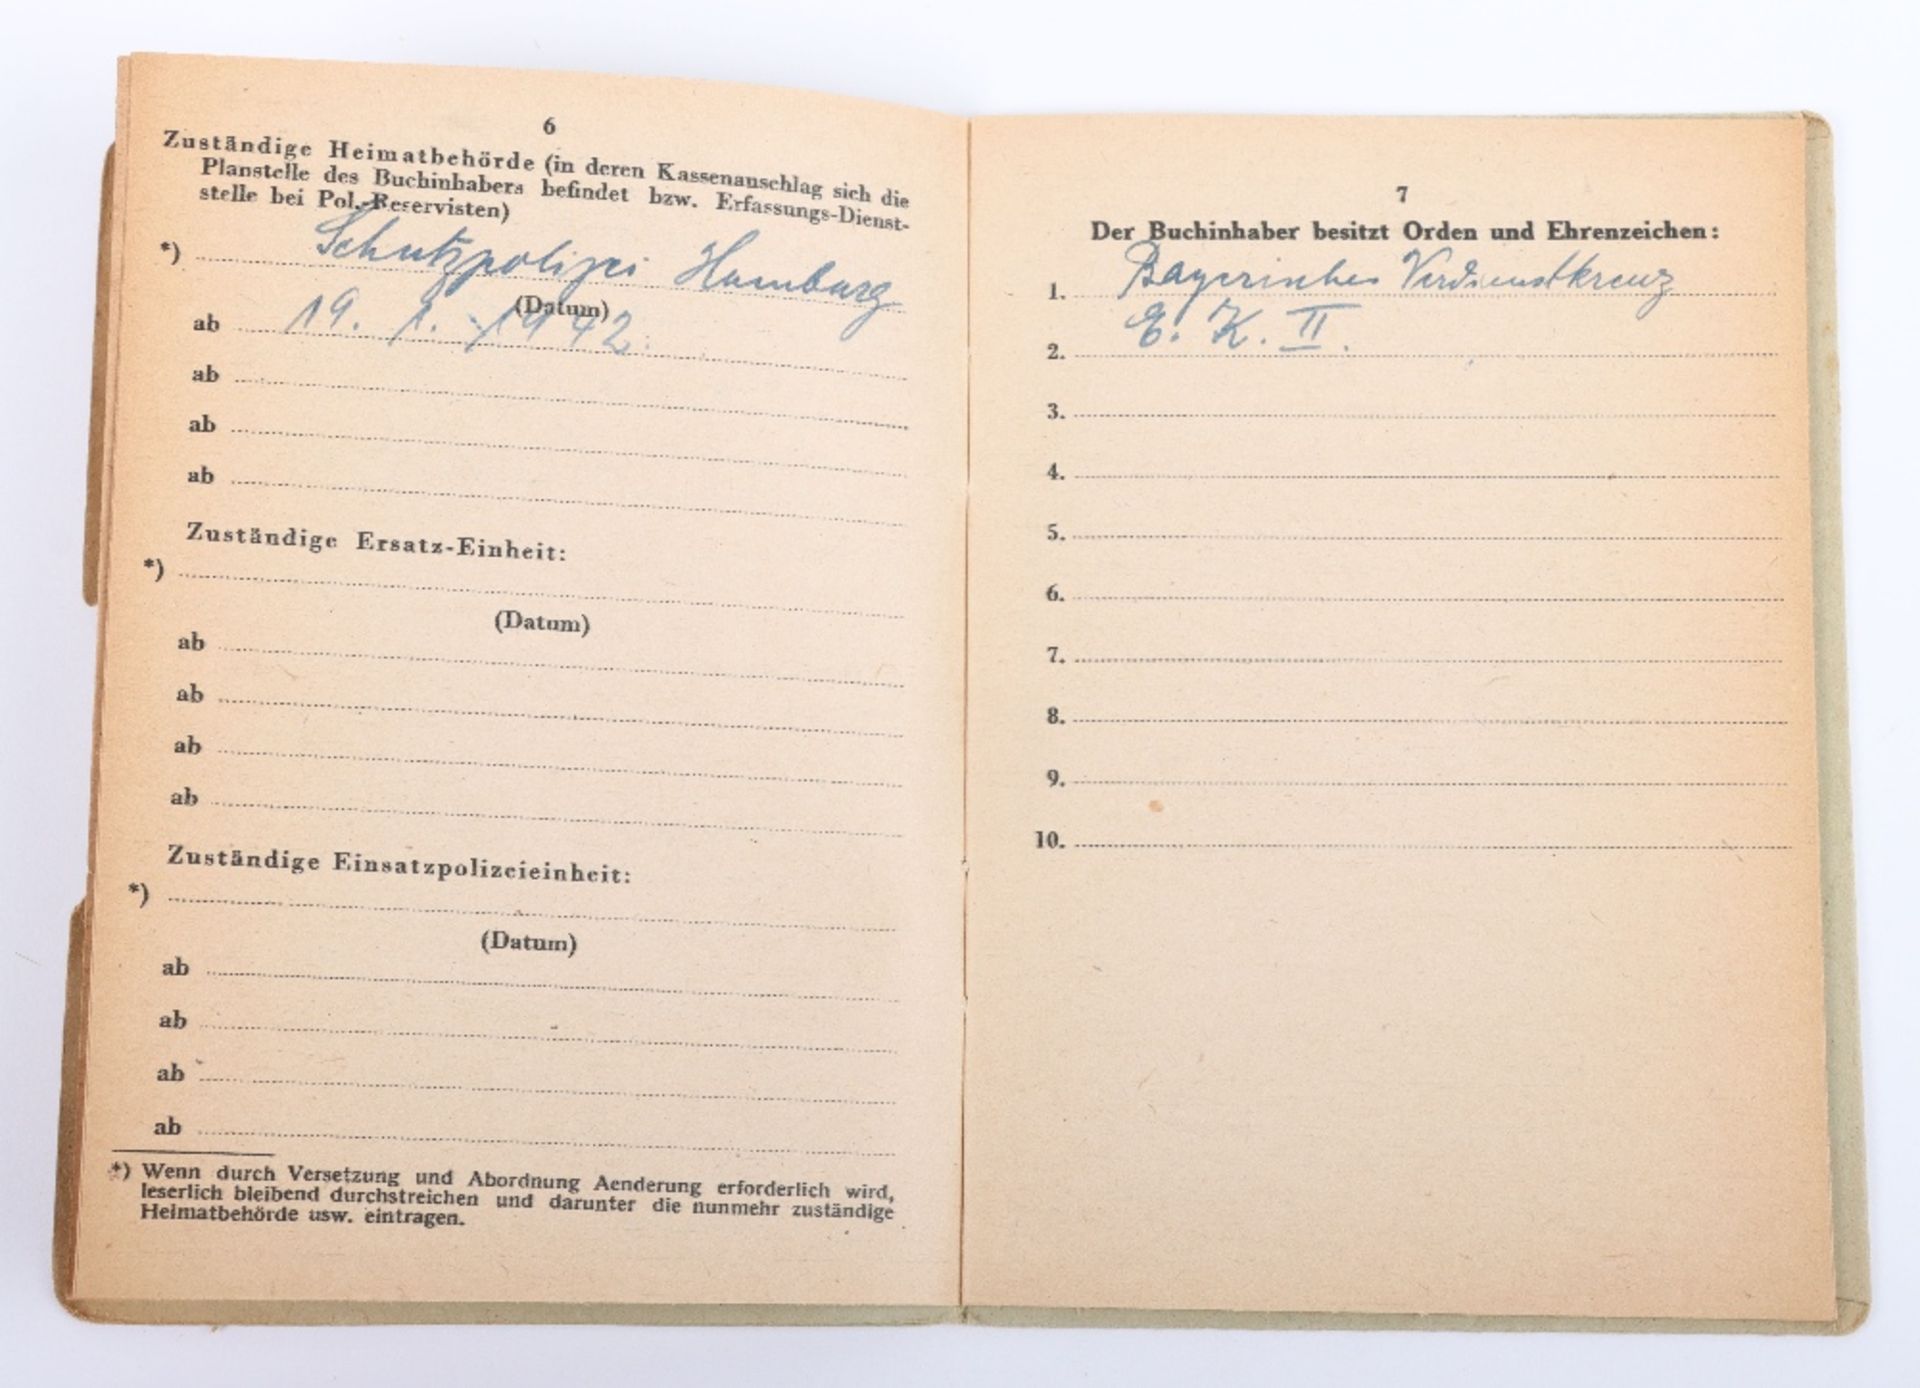 6
Zuständige Heimatbehörde (in deren Kassenanschlag sich die
Planstelle des Buchinhabers befindet bzw. Erfassungs-Dienst-
stelle bei Pol.-Reservisten)
*) Schutzpolizei Hamburg
(Datum)
ab 19. 1. 1942.
ab
ab
ab
Zuständige Ersatz-Einheit:
*)
(Datum)
ab
ab
ab
ab
Zuständige Einsatzpolizeieinheit:
*)
(Datum)
ab
ab
ab
ab
*) Wenn durch Versetzung und Abordnung Aenderung erforderlich wird,
leserlich bleibend durchstreichen und darunter die nunmehr zuständige
Heimatbehörde usw. eintragen.
7
Der Buchinhaber besitzt Orden und Ehrenzeichen:
1. Bayerisches Verdienstkreuz
2. E. K. II.
3.
4.
5.
6.
7.
8.
9.
10.